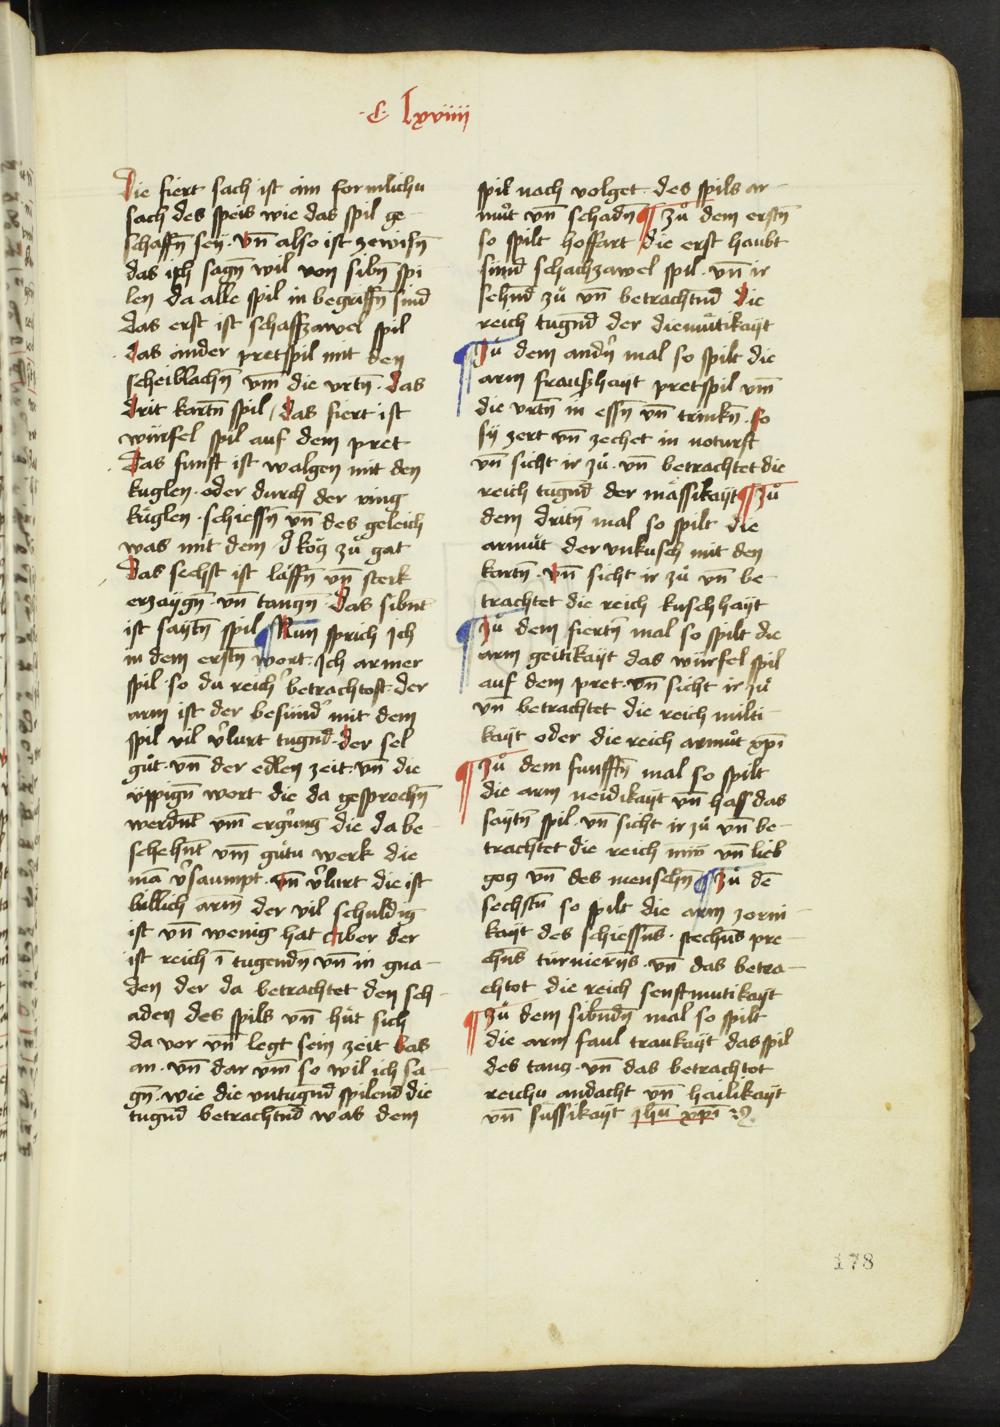 ·C· lxviiii
Die fiert sach ist ain formlichu
sach des speis wie das spil ge-
schaffn̄ seÿ · vn̄ also ist zewisn̄
das ich sagn̄ wil von sibn̄ spi
len da alle spil in begriffn̄ sind
Das erst ist schaffzawel spil
das ander pretspil mit den
scheiblachn̄ vm̄ die vrtn̄ · Das
Drit kartn̄ spil / das fiert ist
würfel spil auf dem pret
Das funft ist walgen mit den
kuglen · oder durch der ring
kuglen · schiessn̄ vn̄ des geleich
was mit dem zů gat
Das sechst ist läffn̄ vn̄ sterk
erzaÿgn̄ · vn̄ tanczn̄ Das sibnt
ist saÿtn̄ spil ¶ Nun sprich Ich
in dem erstn̄ wort · Ich armer
spil · so du reich betrachtost · der
arm ist der besünd mit dem
spil vil v̾lurt tugnd̄ · der sel
gůt · vn̄ der edlen zeit · vn̄ die
üppign̄ wort die da gesprochn̄
werdnt̄ vm̄ erg̾ung die da be-
schehnt̄ vm̄ gůtu werk die
mā v̾saumpt · vn̄ v̾lurt die ist
billich arm der vil schuldig
ist vn̄ wenig hat aber der
ist reich ī tugendn̄ vn̄ in gna-
den der da betrachtet den sch-
aden des spils vn̄ hüt sich
da vor vn̄ legt sein zeit bas
an · vn̄ dar vm̄ so wil ich sa-
gn̄ · wie die vntugnd̄ spilend die
tugnd̄ betrachtnd̄ was dem
spil nach volget · des spils ar-
můt vn̄ schadn̄ ¶ Zů dem erstn̄
so spilt hoffart die erst haubt
sünd schachzawel spil · vn̄ ir
sehnd̄ zů vn̄ betrachtnd̄ die
reich tugnd̄ der diemůtikaÿt
¶ Zů dem andn̄ mal so spilt die
arm fraußhayt pretspil vm̄
die vrtn̄ in essn̄ vn̄ trinkn̄ · so
sÿ zert vn̄ zechet in noturft
vn̄ sicht ir zů · vn̄ betrachtet die
reich tugnd̄ der mässikaÿt ¶ Zů
dem dritn̄ mal so spilt die
armůt der vnkusch mit den
kartn̄ · vn̄ sicht ir zů vn̄ be-
trachtet die reich kuschhayt
¶ Zů dem fiertn̄ mal so spilt die
arm geitikaÿt das würfel spil
auf dem pret · vn̄ sicht ir zů
vn̄ betrachtet die reich milti-
kaÿt oder die reich armůt xpī
¶ Zů dem funfftn̄ mal so spilt
die arm neidikaÿt vn̄ hass das
saÿtn̄ spil · vn̄ sicht ir zů vn̄ be-
trachtet die reich vn̄ lieb
gocz vn̄ des menschn̄ ¶ Zů dē
sechstn̄ so spilt die arm zorni-
kaÿt des schiessn̄s · stechn̄s pre-
chn̄s turnierīs · vn̄ das betra-
chtot die reich senftmutikaÿt
¶ Zů dem sibndn̄ mal so spilt
die arm faul traukaÿt das spil
des tancz · vn̄ das betrachtot
reichu andacht vn̄ hailikaÿt
vn̄ süssikaÿt jhū xpī
178